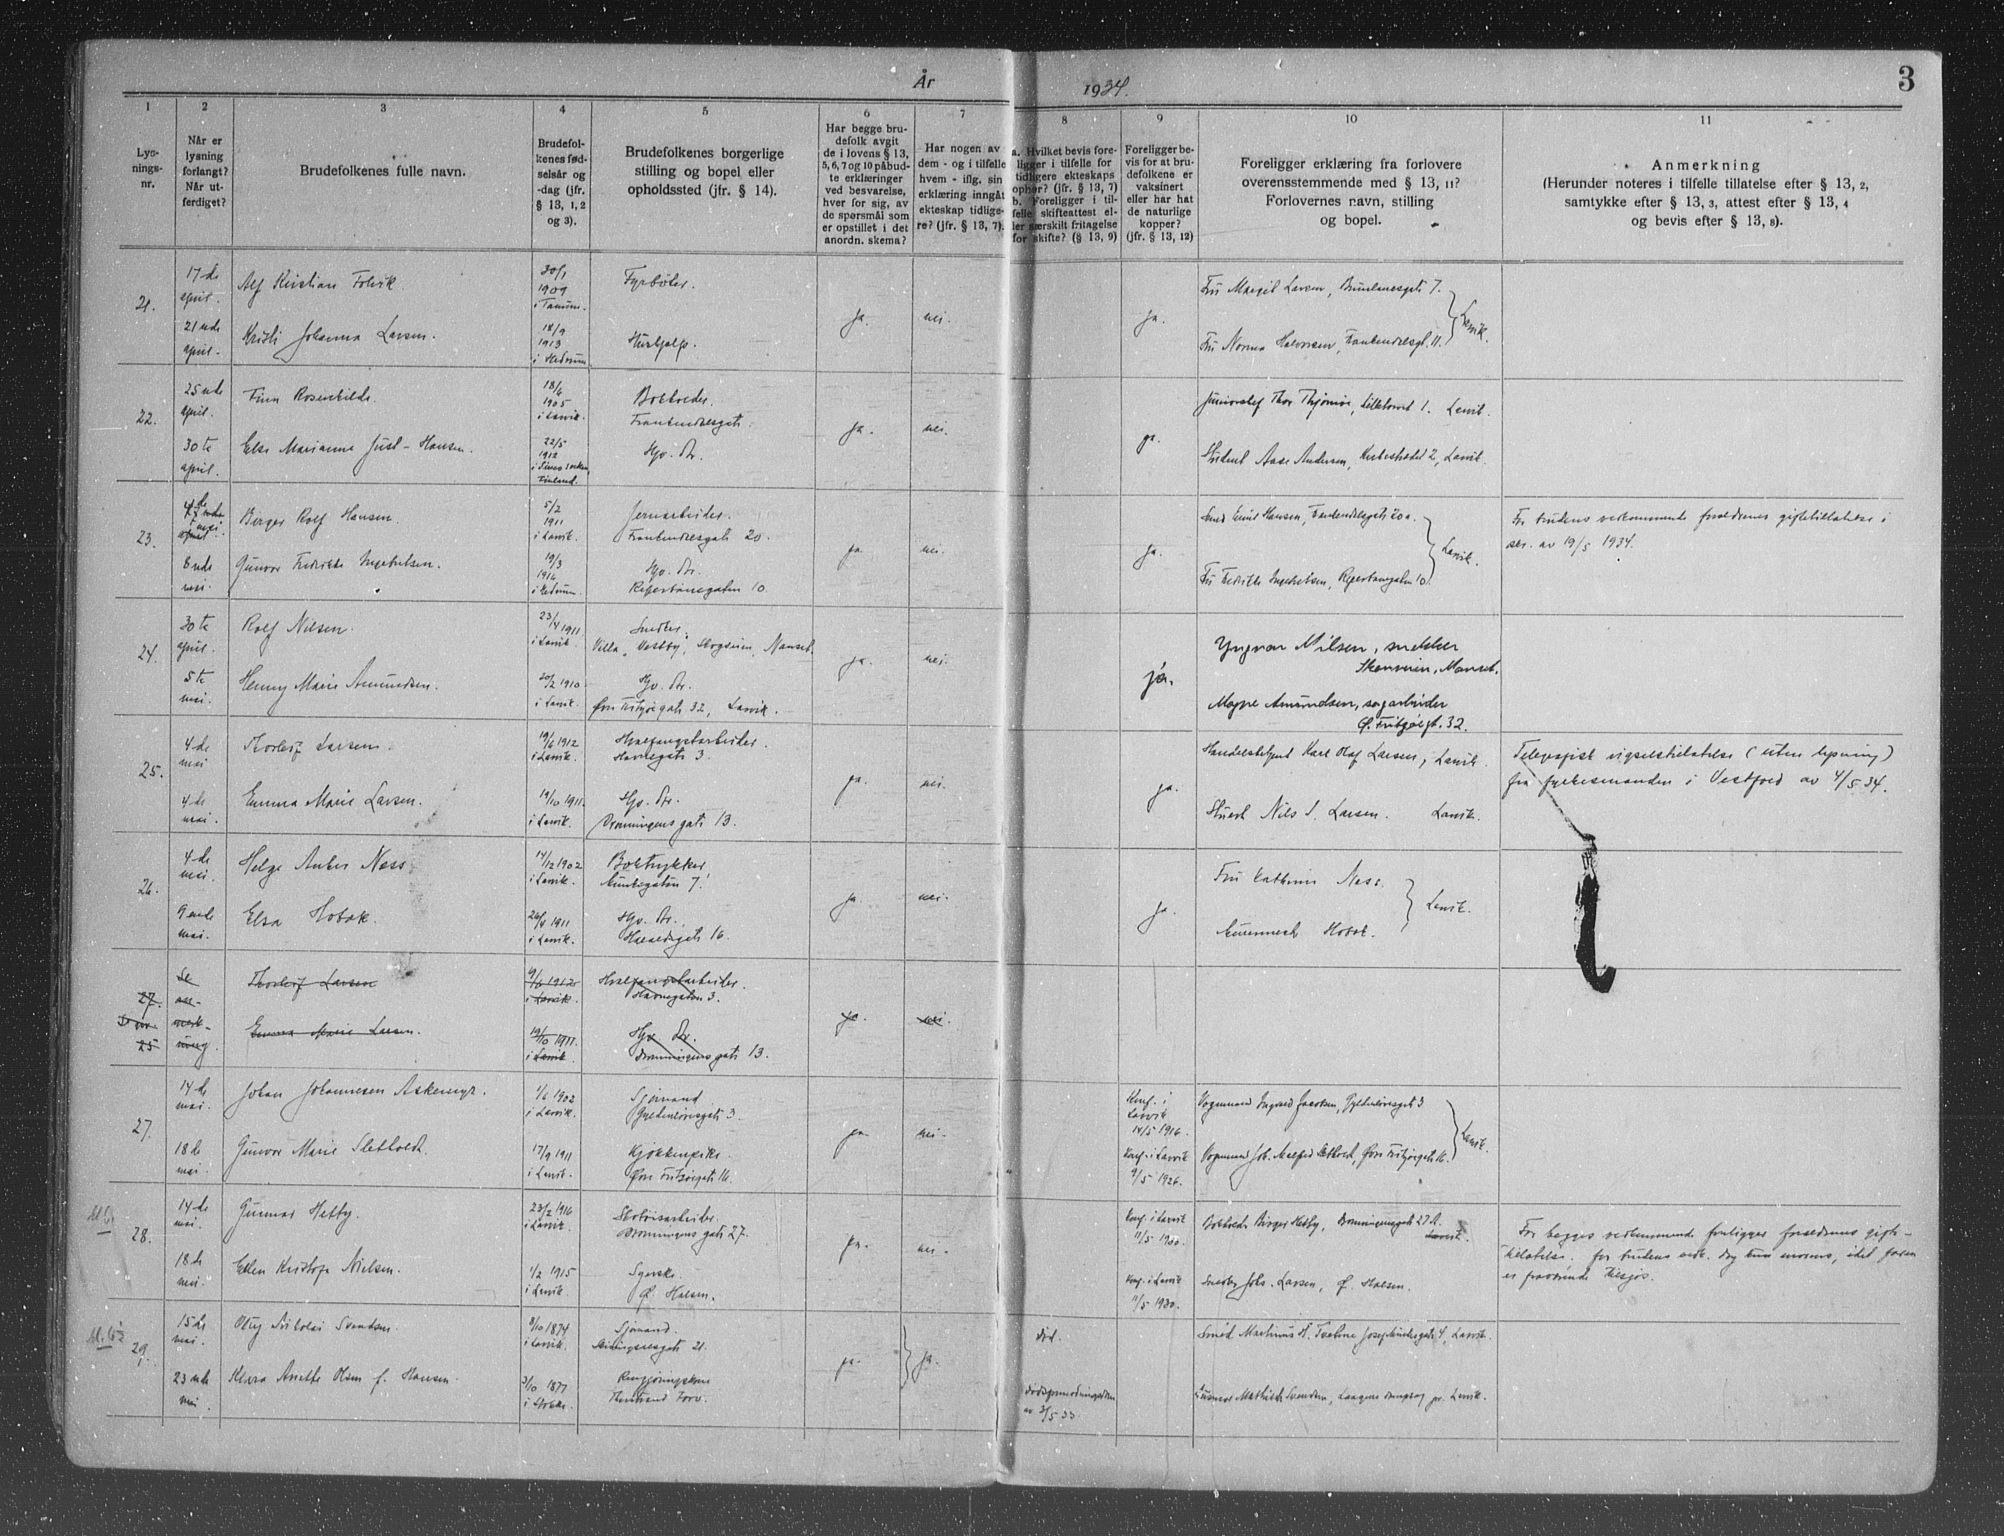 År 1934.
3
1
2
3
4
5
6
7
8
9
10
11
Lys-
nings-
nr.
Når er
lysning
forlangt?
Når ut-
ferdiget?
Brudefolkenes fulle navn.
Brudefol-
kenes fød-
selsår og
-dag (jfr.
§ 13, 1, 2
og 3).
Brudefolkenes borgerlige
stilling og bopel eller
opholdssted (jfr. § 14).
Har begge bru-
defolk avgit
de i lovens § 13,
5, 6, 7 og 10 påbud-
te erklæringer
ved besvarelse,
hver for sig, av
de spørsmål som
er opstillet i det
anordn. skema?
Har nogen av
dem - og i tilfelle
hvem - iflg. sin
erklæring inngått
ekteskap tidlige-
re? (jfr. § 13, 7).
a. Hvilket bevis fore-
ligger i tilfelle for
tidligere ekteskaps
ophør? (jfr. § 13, 7)
b. Foreligger i til-
felle skifteattest el-
ler særskilt fritagelse
for skifte? (§ 13, 9)
Foreligger be-
vis for at bru-
defolkene er
vaksinert
eller har hat
de naturlige
kopper?
(jfr. § 13, 12)
Foreligger erklæring fra forlovere
overensstemmende med § 13, 11?
Forlovernes navn, stilling
og bopel.
Anmerkning
(Herunder noteres i tilfelle tillatelse efter § 13, 2,
samtykke efter § 13, 3, attest efter § 13, 4
og bevis efter § 13, 8).
21.
17 de
april.
21 nde
april.
Alf Kristian
Kristi Johanna Larsen.
30/1
1909
i Tanum.
18/9
1913
i Hedrum
Fyrbøter.
Hushjelp.
ja.
nei.
ja.
Fru Margit Larsen, 7.
Fru Norma Halvorsen, 11.
Larvik.
22.
25 nde
april.
30 te
april.
Finn Rosenkilde.
Else Marianne Just-Hansen.
18/6
1905
i Larvik.
22/5
1912
Finland.
Boktrder
Hjv. Dr.
ja.
nei.
ja.
Thor Thjømøe, 1. Larvik.
Student Aase Andersen, 2, Larvik.
23.
mai
8 nde
mai.
Birger Rolf Hansen.
Gunvor Fredrikke Ingebretsen.
5/2
1911
i Larvik.
19/3
1916
i Hedrum.
Jernarbeider.
20.
Hjv. Dr.
Reperbanegaten 10
ja
nei.
ja.
Smed Emil Hansen, 20a.
Fru Fredrikke Ingebretsen, Reperbanegaten 10.
Larvik.
For brudens vedkommende foreldrenes giftetillatelse i
skr. av 19/5 1934.
24.
30 te
april.
5 te
mai.
Rolf Nilsen.
Henny Marie Amundsen.
23/4 1911
i Larvik.
20/2 1910
i Larvik.
Snekker,
Villa "Vestby", Skogveien, Nanset.
Hjv. Dr.
Øvre Fritzøegate 32, Larvik.
ja.
nei.
ja.
Yngvar Nilsen, snekker
Nanset.
Magne Amundsen, sagarbeider
Ø. Fritzøegt. 32.
25.
4 de
mai
4 de
mai.
Thorleif Larsen.
Emma Marie Larsen.
19/6 1912
i Larvik.
19/10 1911.
i Larvik.
Hvalfangstarbeider.
Havnegate 3
Hjv. Dr.
Dronningensgate 13.
ja.
nei.
ja.
Handelsbetjent Karl Olaf Larsen, Larvik.
Stuert Nils S. Larsen. Larvik.
Telegrafisk vigselstillatelse (uten lysning)
fra fylkesmannden i Vestfold av 4/5 34.
26.
4 de
mai.
9 nde
mai.
Helge Anker Ness
Elsa Hobæk.
14/12 1902
i Larvik.
26/4 1911
i Larvik.
Boktrykker
Munkegaten 7.
Hjv. Dr.
Haraldsgate 16.
ja.
nei.
ja.
Fru Kathrine Ness.
Hobæk.
Larvik.
27.
Se nr.
25
Se
an-
merk-
ning
Thorleif Larsen
Emma Marie Larsen.
9/6 1912
i Larvik.
19/10 1911.
i Larvik.
Hvalfangstarbeider.
Havnegaten 3.
Hjv. Dr.
Dronningensgate 13.
ja.
nei.
27.
14 de
mai.
18 de
mai.
Johan Johannesen Askemyr.
Gunvor Marie Sletholdt.
1/6 1902
i Larvik.
17/9 1911
i Larvik.
Sjømand
Gyldenløvesgate 3.
Kjøkkenpike.
Øvre Fritzøegate 16.
ja.
nei.
Konf. i
Larvik
14/5 1916.
Konf. i Larvik
9/5 1926.
Vognmand Ingvard Jacobsen, Gyldenløvesgate 3
Vognmand Joh. Sletholdt, Øvre Fritzøegate 16.
Larvik.
28.
14 de
mai.
18 de
mai.
Gunnar Hetby.
Ellen Kristofa Nielsen.
23/2 1916
i Larvik.
1/2 1915
i Larvik.
Skotøisarbeider.
Dronningensgate 27.
Syerske.
Ø. Halsen.
ja.
nei.
Konf. i Larvik
11/5 1930.
Konf. i Larvik
11/5 1930.
Birger Hetby, Dronningensgate 27 A.
Larvik.
Johs. Larsen, Ø. Halsen.
For begges vedkommende foreligger foreldrenes gifte-
tillatelse. For brudens vedk. dog kun morens, idet faren
er fraværende tilsjøs.
29.
15 de
mai.
23 nde
mai.
Oluf Nikolai Svendsen.
Klara Anette Olsen f. Hansen.
8/10 1874
i Larvik.
3/10 1877
i Stokke.
Sjømand.
21.
Rengjøringskone
Torv.
ja.
ja.
død.
av 3/5 33
Smed Martinus H. Tvetene 4, Larvik.
Mathilde Svendsen, pr. Larvik.